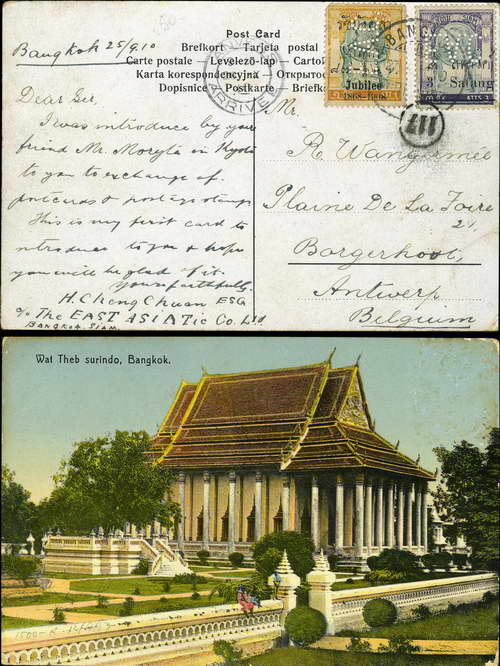 Post Card
Bangkok 25/9.10
Brefkort - Tarjeta postal
Carte postale - Levelező-lap - Cartol
Karta korespondencyjna - Открытое
Dopisnice - Postkarte - Briefk
ARRIVEE
Jubilee
1868-1908
Satang
BAN
117
Dear Ser,
I was introduce by your
friend Mr. Moryta in Kyoto
to you to exchange of
postcards & postage stamps
This is my first card to
introduce to you & hope
you will be glad of it.
yours faithfully.
H. Cheng Chuan ESQ
c/o The EAST ASIATic Co. Ltd
BANGKOK. SIAM.
Mr.
R. Wangermée
Plaine De La Foire
21,
Borgerhout,
Antwerp
Belguim
Wat Theb surindo, Bangkok.